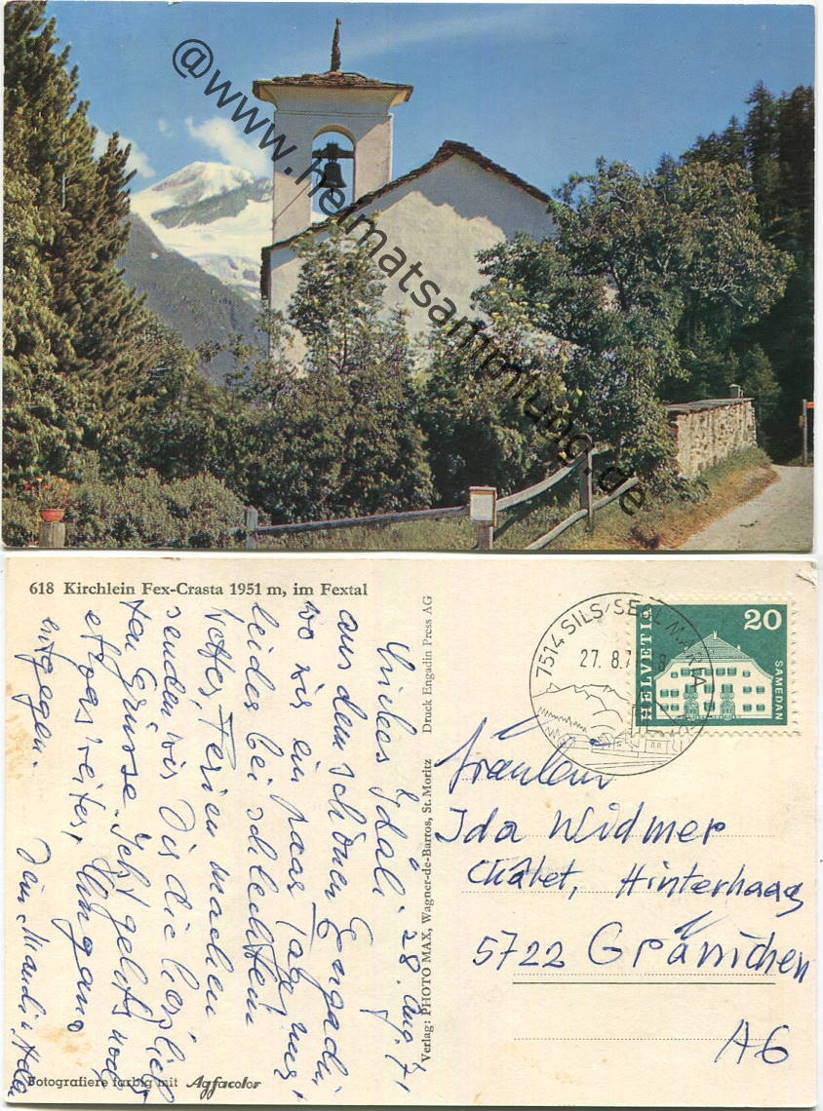 @www.heimatsammlung.de
618 Kirchlein Fex-Crasta 1951 m, im Fextal
Liebes Idäli. 28. Aug. 71
aus dem schönen Engadin,
wo wir ein paar Tage nur,
leider bei schlechtem
Wetter, Ferien machen
senden wir Dir die herzlich
sten Grüsse. Jetzt gehts noch
etwas weiter, Lugano
entgegen.
Dein
Verlag: PHOTO MAX, Wagner-de-Barros, St. Moritz Druck Engadin Press AG
Fotografiere farbig mit Agfacolor
7514 SILS/SEGL MARIA
27. 8.7
HELVETIA
20
SAMEDAN
Fräulein
Ida Widmer
Châlet, Hinterhaag
5722 Gränichen
AG